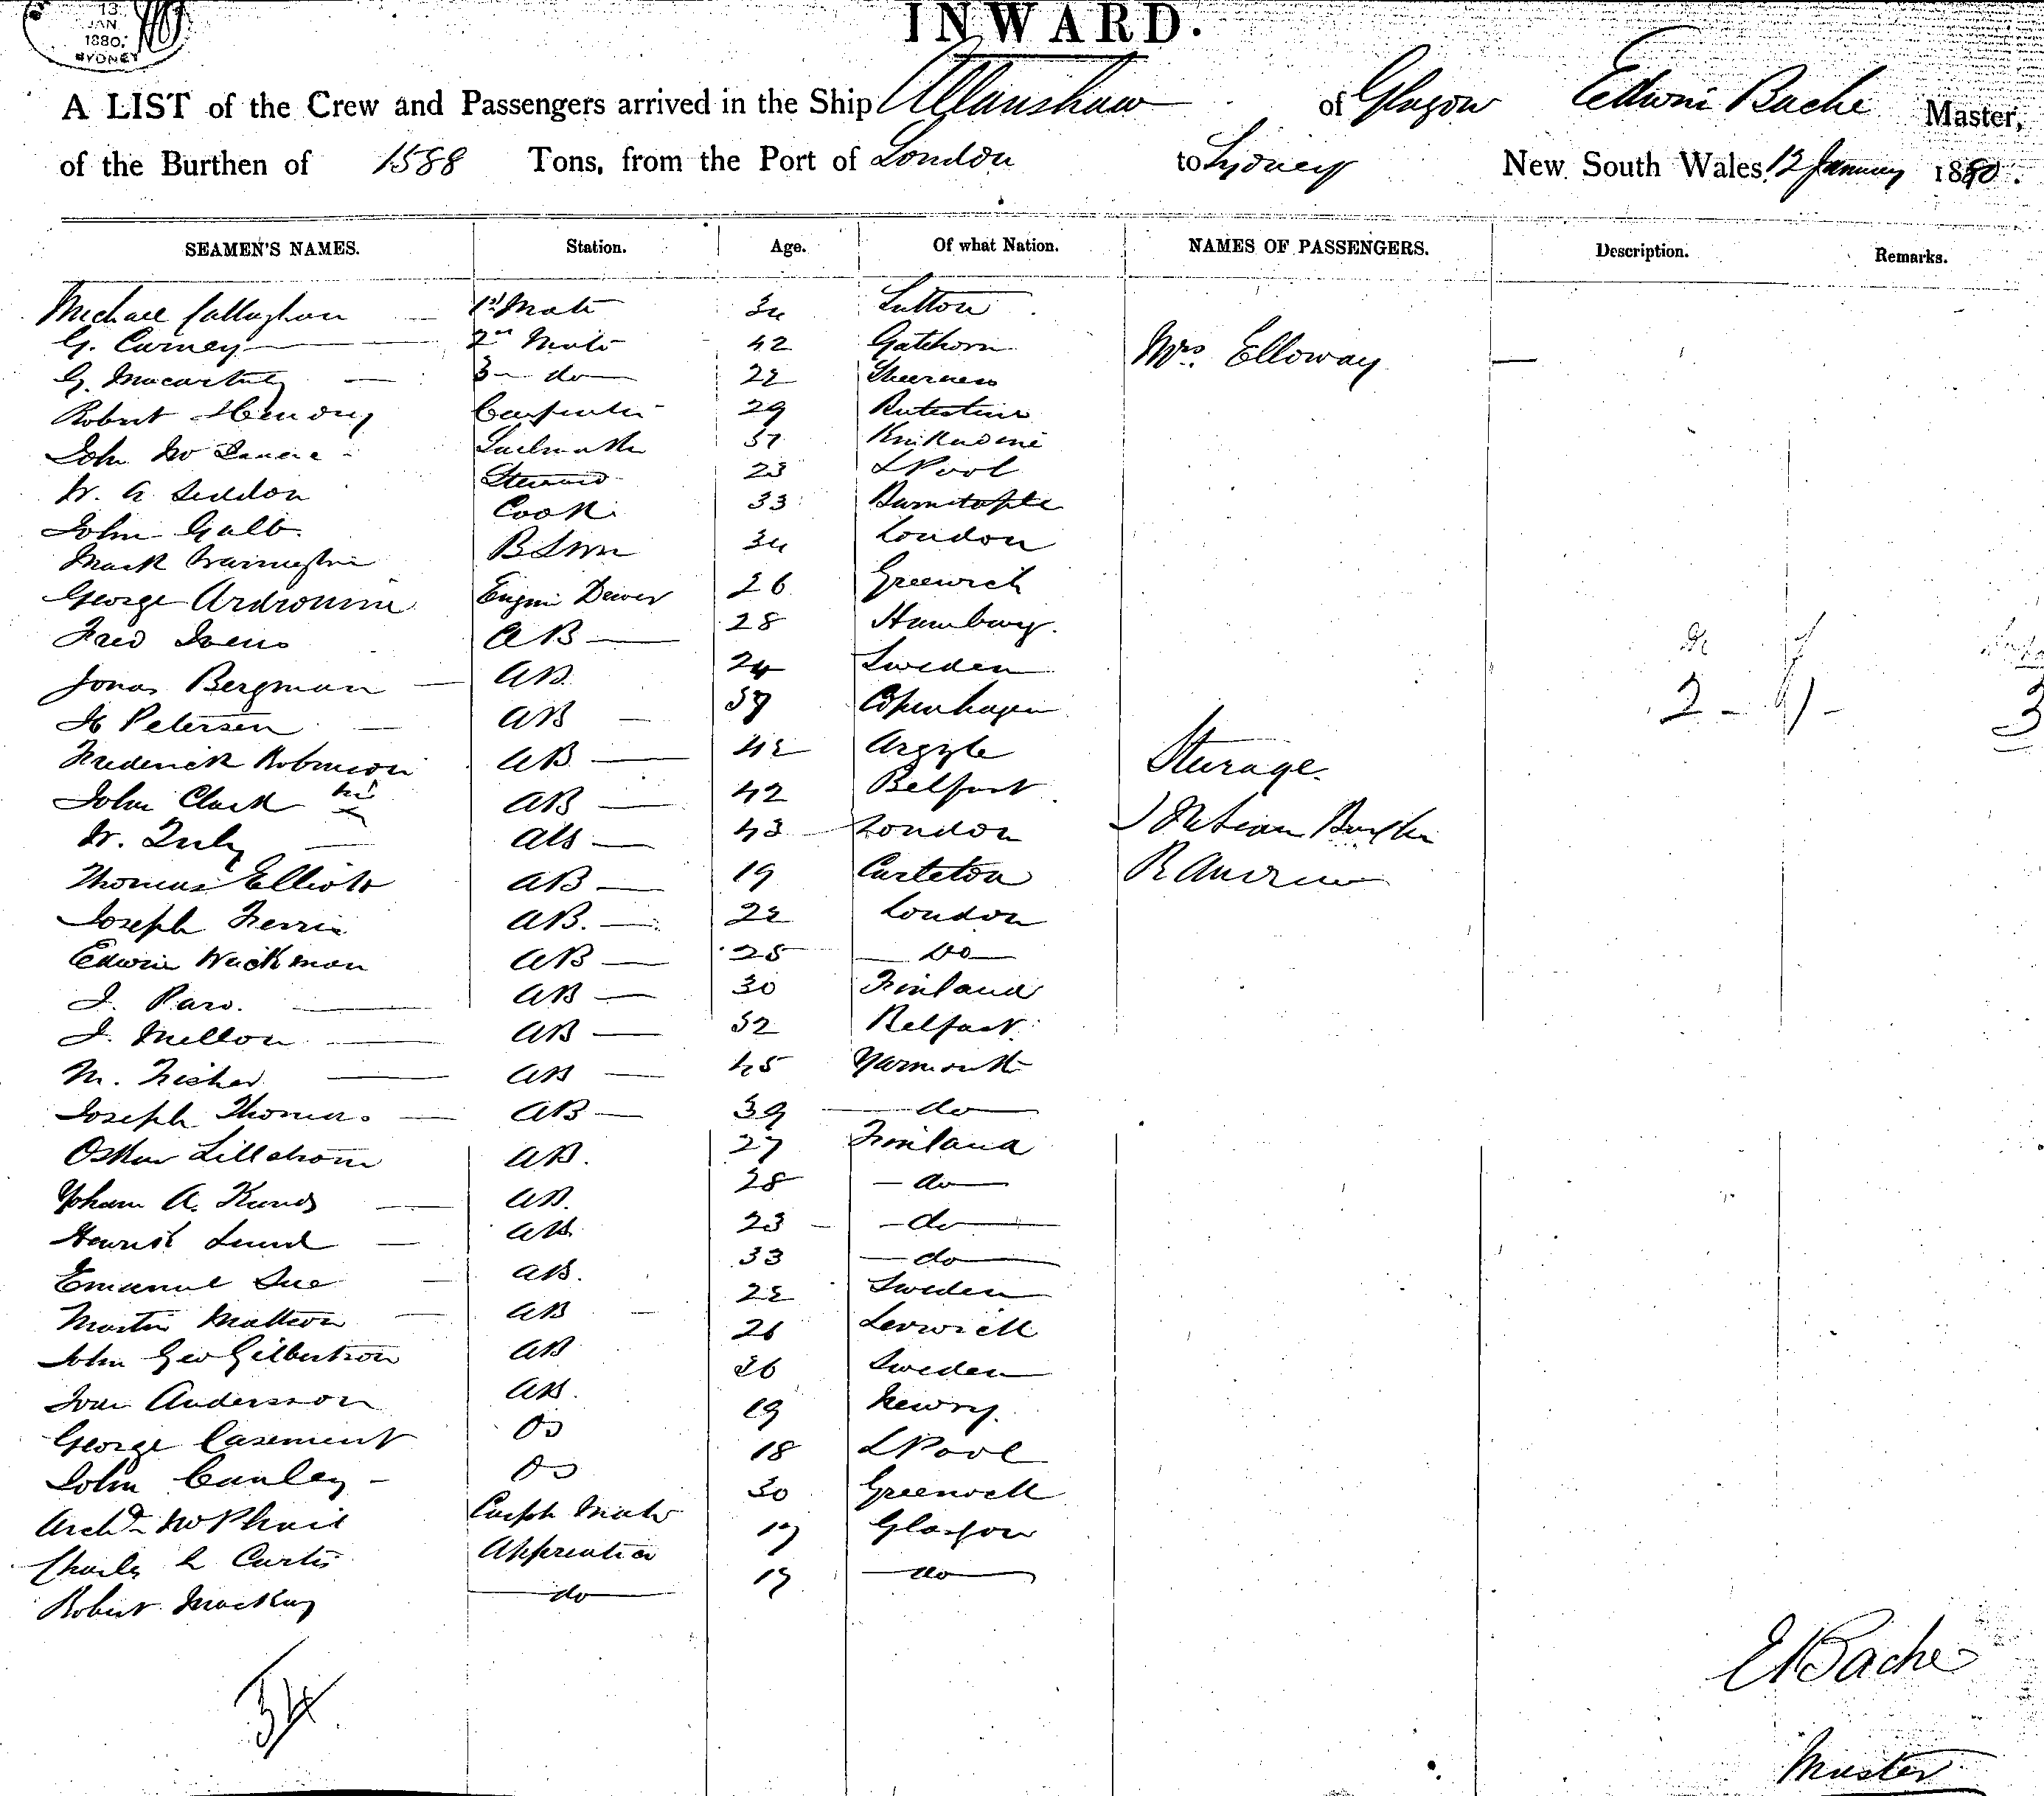 13
JAN
1880.
SYDNEY
INWARD.
A LIST of the Crew and Passengers arrived in the Ship Allanshaw of Glasgow Edwin Bache Master,
of the Burthen of 1588 Tons, from the Port of London to Sydney New South Wales, 12 January 1880.
SEAMEN'S NAMES. Station. Age. Of what Nation. NAMES OF PASSENGERS. Description. Remarks.
Michael Callaghan 1st Mate 34 Sutton
G. Carney 2nd Mate 42 Gatehorn Mrs. Elloway
G. Macartney 3 do 22 Sheerness
Robert Hendry Carpenter 29
John Sailmaker 37
W. A Seddon Steward 23 LPool
John Galb Cook 33 Barnstaple
Mark Warrington BSwn 34 London
George Ardrounie Engine Driver 26 Greenwich
Fred Ivens AB 28 Hamburg.
Jonas Bergman AB 24 Sweden
H Petersen AB 39 Copenhagen 2 - 1 - 3
Frederick Robinson AB 42 Argyle Sturage.
John Clark AB 42 Belfast
W. AB 43 London
Thomas Elliott AB 19 Carleton R Andrew
Joseph Ferris AB. 22 London
Edwin Wackman AB 25 Do
J. Paro. AB 30 Finland
J. Mellon AB 52 Belfast
M. Fisher AB 45 Yarmouth
Joseph Thomas AB 39 do
Oskar Lillstrom AB. 27 Finland
Yoham A. Kunds AB. 28 do
Henrik Lund AB 23 do
Emanuel Sue AB. 33 do
Martin Mattson AB 22 Sweden
John Geo Gilbertson AB 26 Lerwick
Ivan Andersson AB. 36 Sweden
George Casement OS 19 Newry.
John Cauley OS 18 LPool
Archd McPhail Carptr Mate 30 Greenock
Charles L Curtis Apprentice 17 Glasgow
Robert Mackay do 17 do
34
E Bache
Master